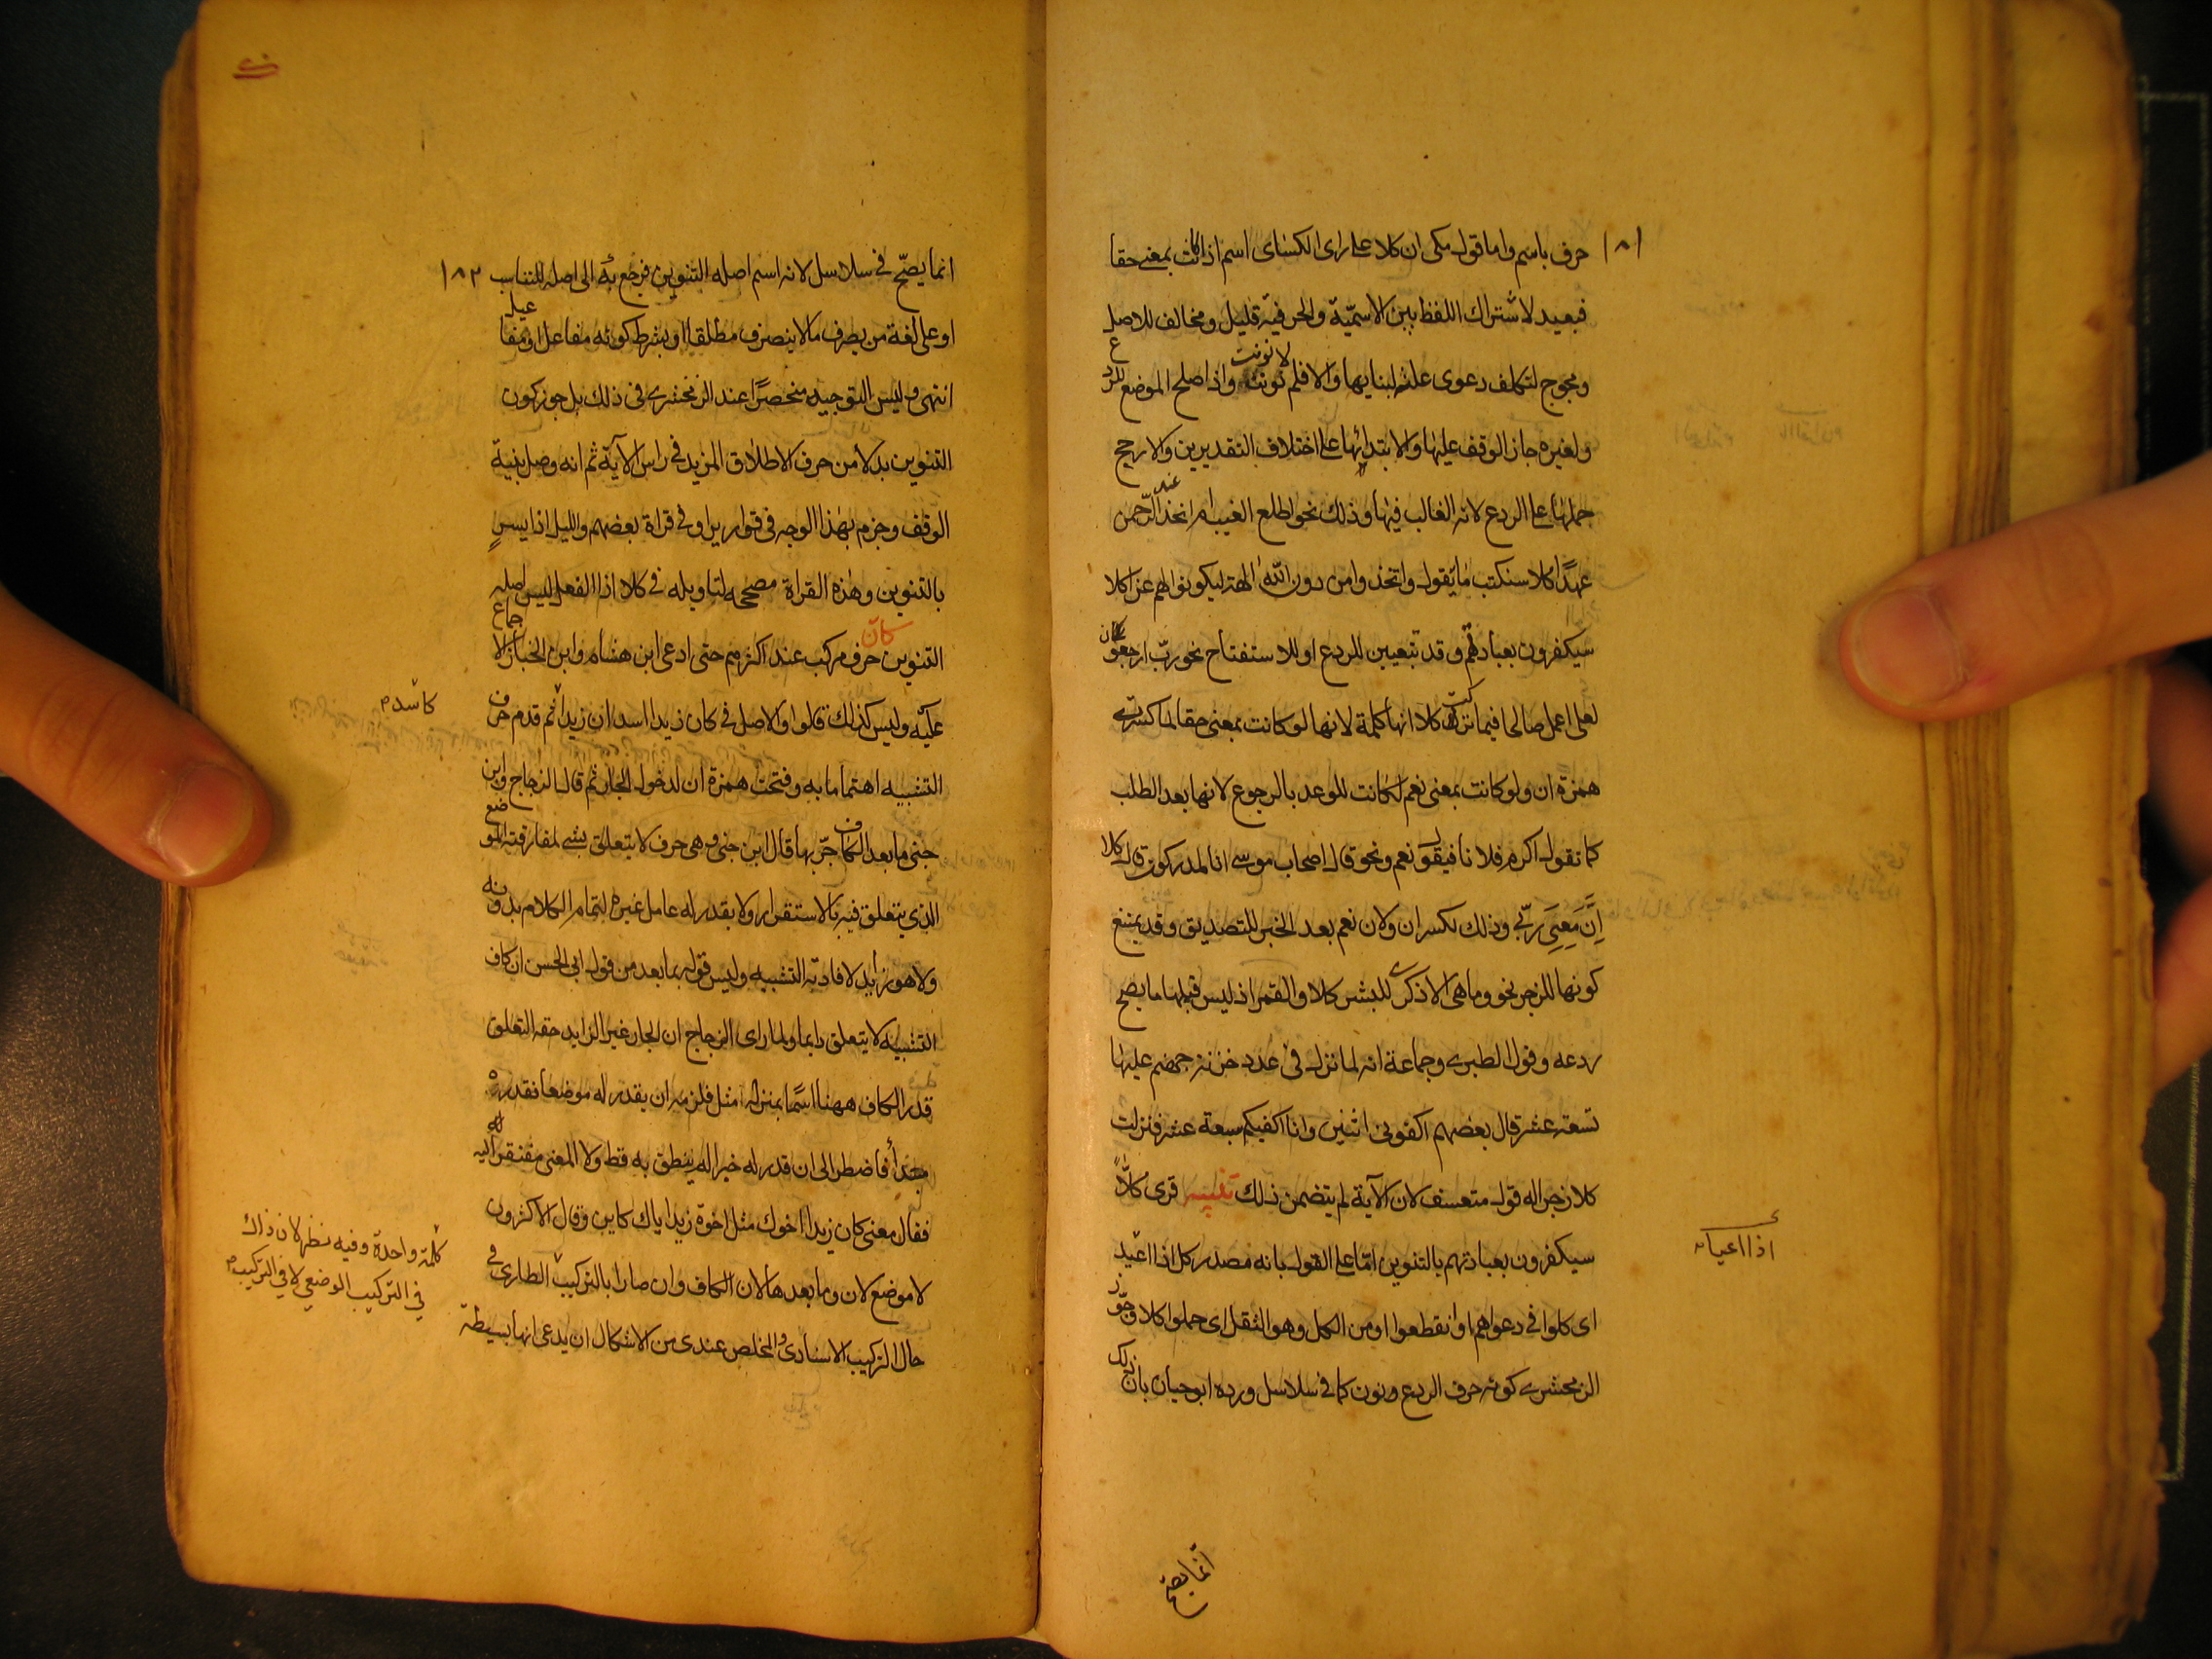 ١٨١
حرف باسم واما قول مكى ان كلا على راى الكسائى اسم اذا كانت بمعنى حقا
فبعيد لاشتراك اللفظ بين الاسمية والحرفية قليل ومخالف للاصل
ومحوج لتكلف دعوى علة لبنايها والا فلم لا نونت واذا صلح الموضع للردع
ولغيره جاز الوقف عليها والابتدائها على اختلاف التقديرين والارجح
حملها على الردع لانه الغالب فيها وذلك نحو اطلع الغيب ام اتخذ عند الرحمن
عهدا كلا سنكتب ما يقول واتخذوا من دون الله الهة ليكونوا لهم عزا كلا
سيكفرون بعبادتهم وقد تتعين للردع او للاستفتاح نحو رب ارجعون
لعلى اعمل صالحا فيما تركت كلا انها كلمة لانها لو كانت بمعنى حقا لما كسرت
همزة ان ولو كانت بمعنى نعم لكانت للوعد بالرجوع لانها بعد الطلب
كما تقول اكرم فلانا فيقول نعم ونحو قال اصحاب موسى انا لمدركون قال كلا
اِنَّ مَعِىَ ربّى وذلك لكسر ان ولان نعم بعد الخبر للتصديق وقد يمتنع
كونها للزجر نحو وما هى الا ذكرى للبشر كلا والقمر اذ ليس قبلها ما يصح
ردعه وقول الطبرى وجماعة انه لما نزل فى عدد خزنة جهنم عليها
تسعة عشر قال بعضهم اكفونى اثنين وانا اكفيكم سبعة عشر فنزلت
كلا زجرا له قول متعسف لان الآية لم يتضمن ذلك تنبيه قرى كلاًّ
سيكفرون بعبادتهم بالتنوين امّا على القول بانه مصدر كل اذا اعيد
اذا اعيا
اى كلوا فى دعواهم او انقطعوا او من الكل وهو الثقل اى حملوا كلا وجوز
الزمخشرى كونه حرف الردع ونون كما فى سلاسل ورده ابو حيان بان ذلك
انما يصح
انما يصحّ فى سلاسل لانه اسم اصله التنوين فرجع به الى اصله للتناسب ١٨٢
او على لغة من يصرف ما لا ينصرف مطلقا او بشرط كونه مفاعل او مفاعيل
انتهى وليس التوجيه منحصرًا عند الزمخشرى فى ذلك بل جوز كون
التنوين بدلا من حرف الاطلاق المزيد فى راس الآية ثم انه وصل بنية
الوقف وجزم بهذا الوجه فى قواريرا وفى قراة بعضهم والليل اذا يسرٍ
بالتنوين وهذه القراة مصححه لتاويله فى كلا اذ الفعل ليس اصله
التنوين كانّ حرف مركب عند اكثرهم حتى ادعى ابن هشام وابن الخباز الاجماع
عليه وليس كذلك قالوا والاصل فى كان زيدا اسد ان زيدا ثم قدم حرف
كاسد
التشبيه اهتماما به وفتحت همزة ان لدخول الجار ثم قال الزجاج وابن
جنى ما بعد الكاف جرّ بها قال ابن جنى وهى حرف لا يتعلق بشى لمفارقته الموضع
الذى يتعلق فيه بالاستقرار ولا يقدر له عامل غيره لتمام الكلام بدونه
ولا هو زايد لافادته التشبيه وليس قوله بابعد من قول ابى الحسن ان كاف
التشبيه لا يتعلق دايما ولما راى الزجاج ان الجار غير الزايد حقه التعلق
قدر الكاف ههنا اسمًا بمنزلة مثل فلزمه ان يقدر له موضعا فقدره
مبتدأ فاضطر الى ان قدر له خبرا لم ينطق به قط ولا المعنى مفتقر اليه
فقال معنى كان زيدا اخوك مثل اخوة زيد اياك كاين وقال الاكثرون
لا موضع لان وما بعدها لان الكاف وان صارا بالتركيب الطارى فى
كلمة واحدة وفيه نظر لان ذاك
فى التركيب الوضعى لا فى التركيب
حال التركيب الاسنادى والمخلص عندى من الاشكال ان يدعى انها بسيطة